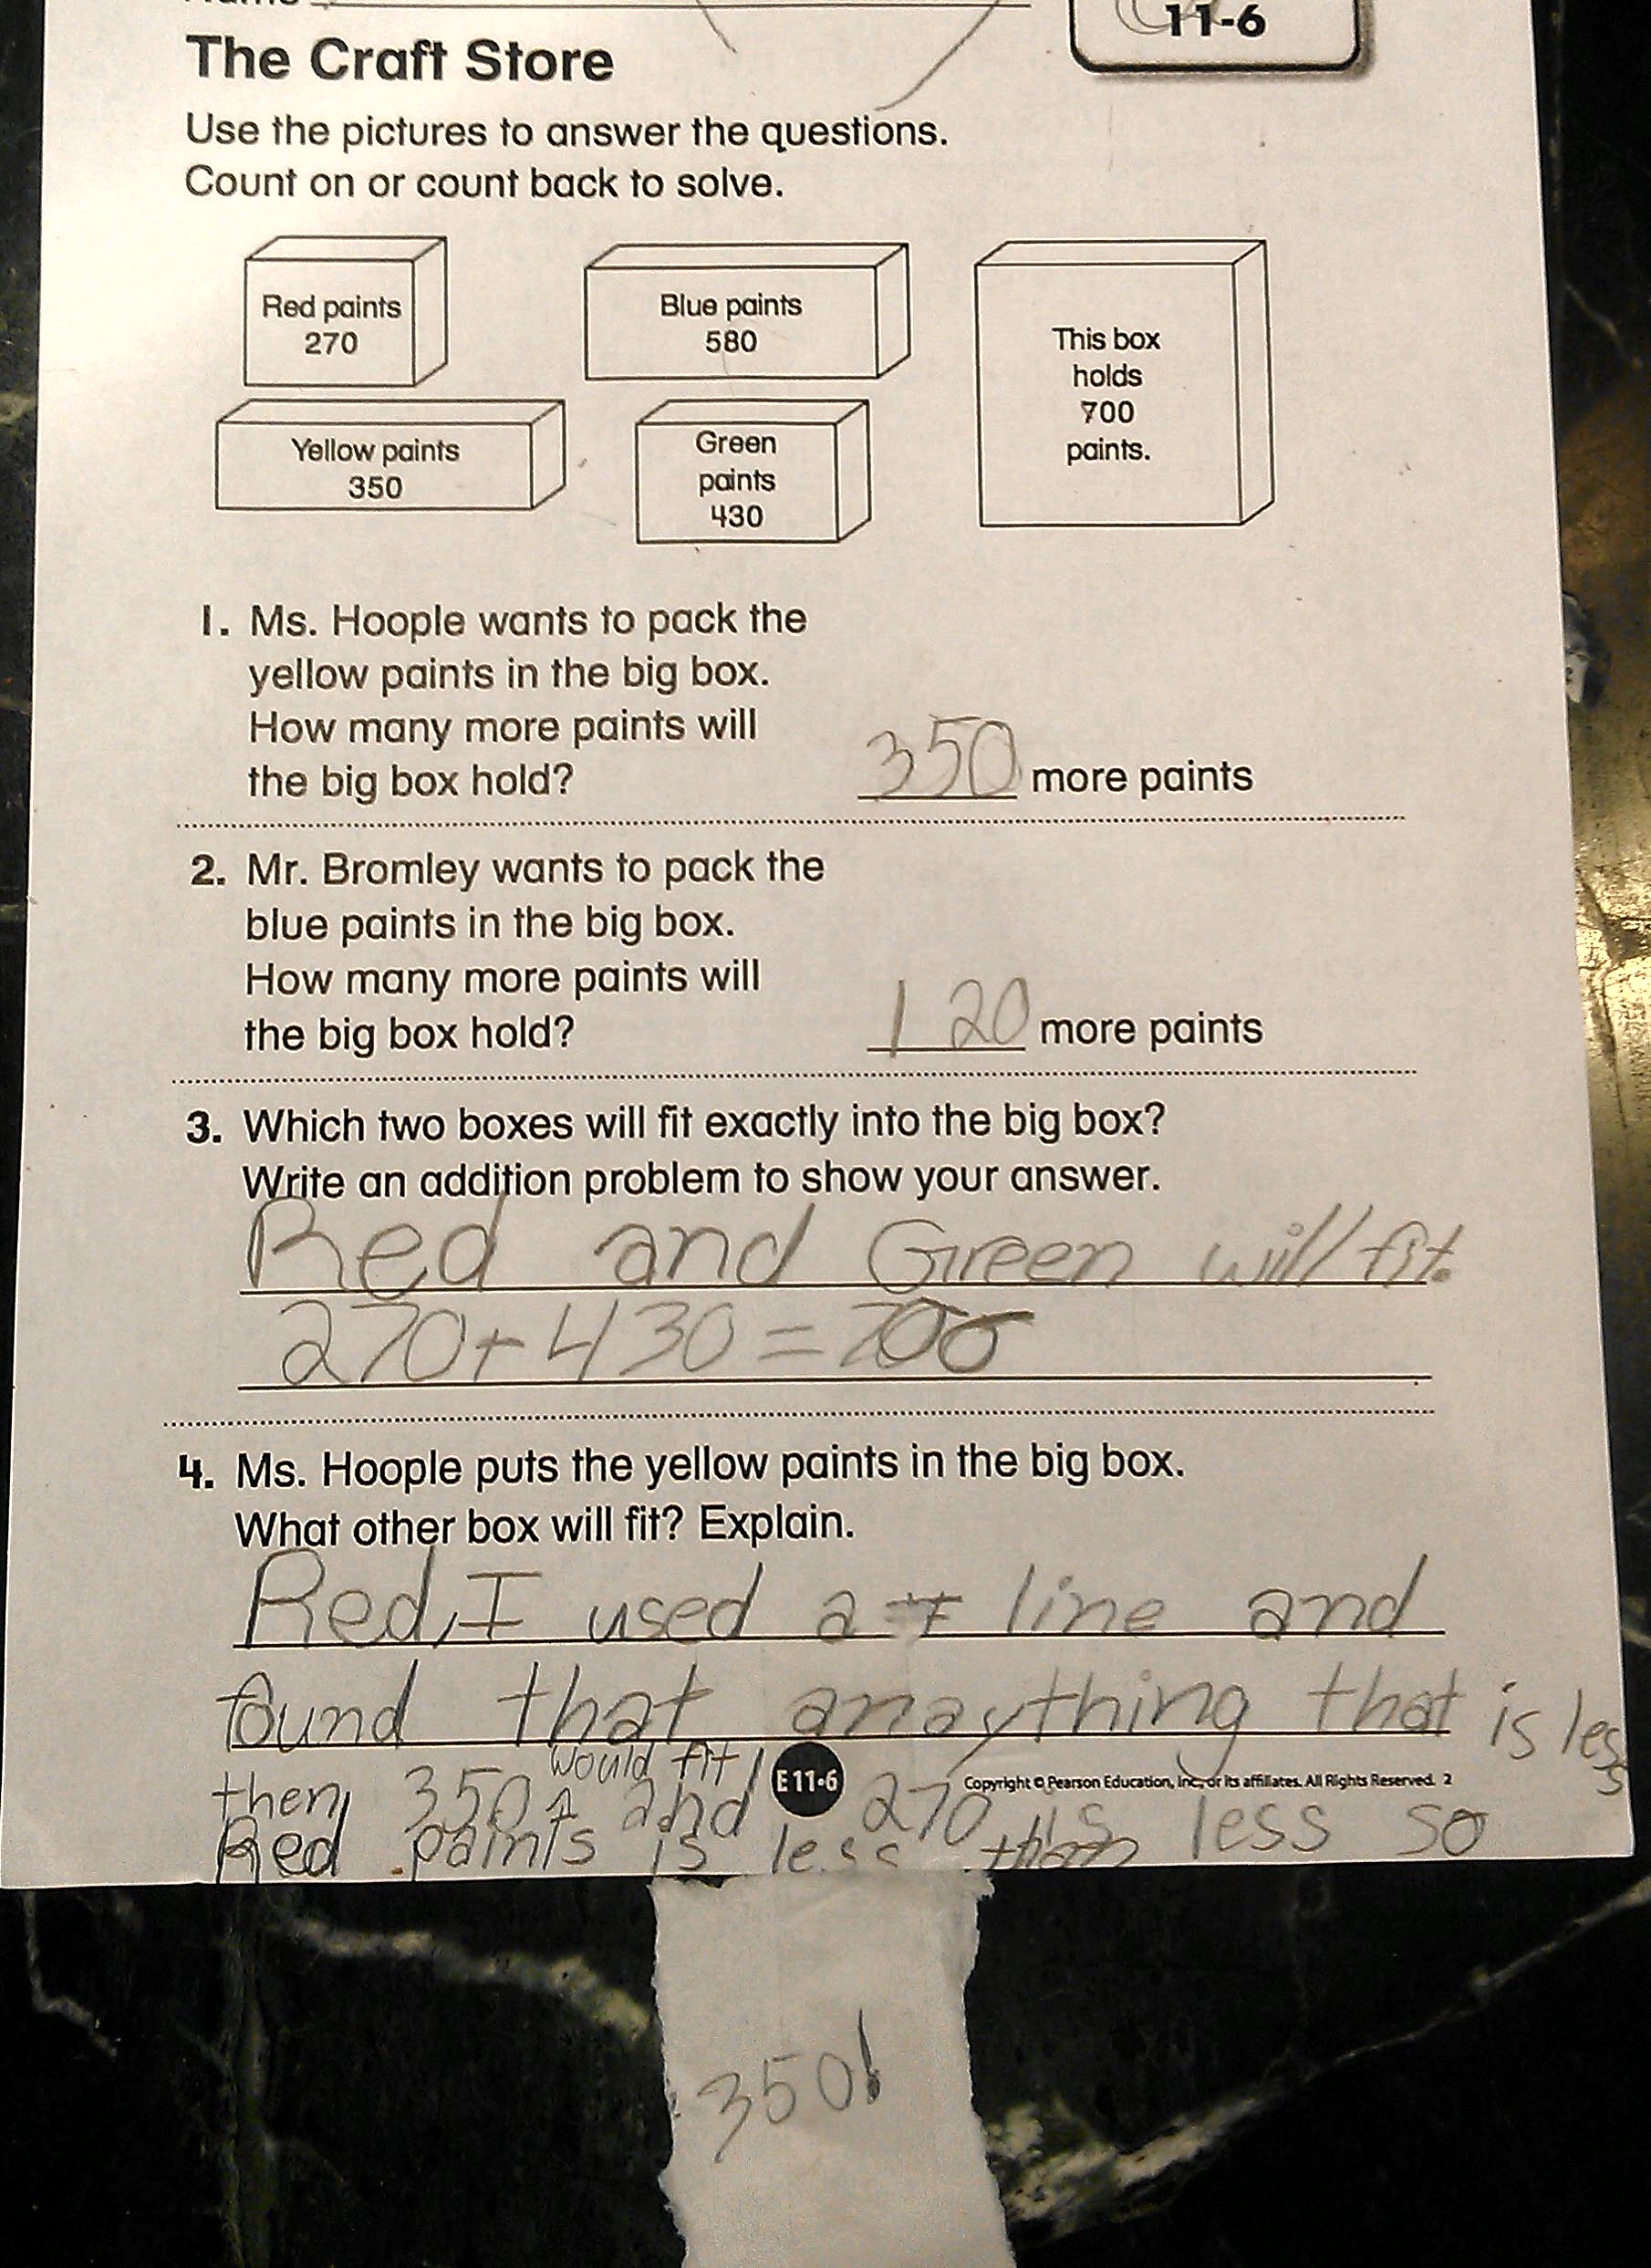 11-6
The Craft Store
Use the pictures to answer the questions.
Count on or count back to solve.
Red paints
270
Blue paints
580
This box
holds
700
paints.
Yellow paints
350
Green
paints
430
1. Ms. Hoople wants to pack the
yellow paints in the big box.
How many more paints will
the big box hold? 350 more paints
2. Mr. Bromley wants to pack the
blue paints in the big box.
How many more paints will
the big box hold? 120 more paints
3. Which two boxes will fit exactly into the big box?
Write an addition problem to show your answer.
Red and Green will fit.
270+430=700
4. Ms. Hoople puts the yellow paints in the big box.
What other box will fit? Explain.
Red, I used a # line and
found that anaything that is less
would fit
then 350 and 270 is less so
E 11•6
Copyright © Pearson Education, Inc., or its affiliates. All Rights Reserved. 2
Red paints is less than
350!